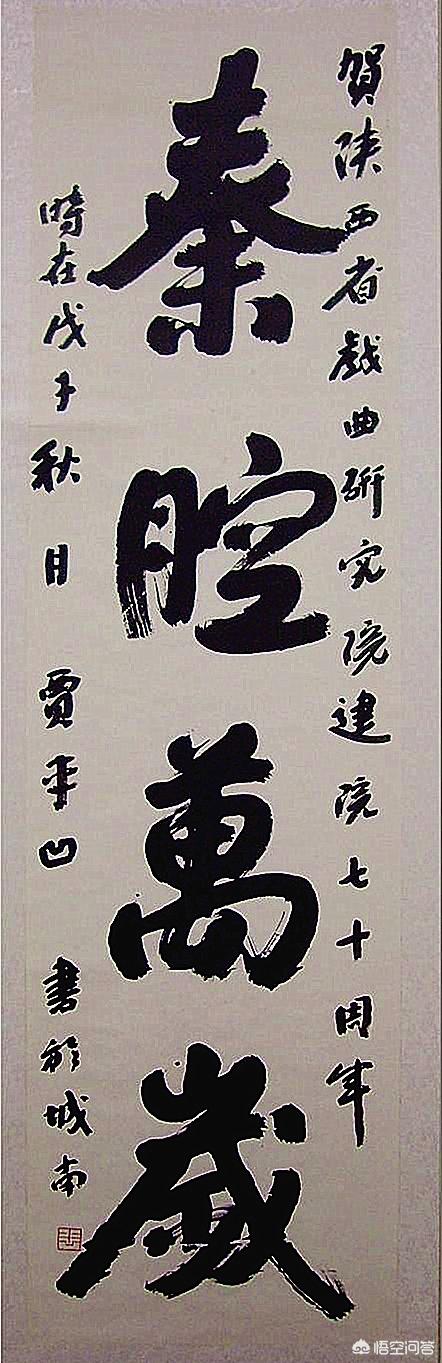 賀陕西省戲曲研究院建院七十周年
秦腔萬歲
時在戊子秋月 賈平凹 書於城南
悟空问答